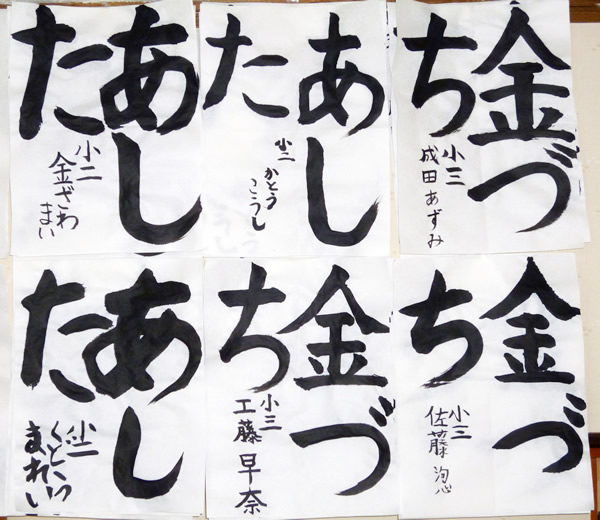 あし
た
小二
金ざわ
まい
あし
た
小二
かとう
こうし
金づ
ち
小三
成田あずみ
あし
た
小二
くどう
まれい
金づ
ち
小三
工藤早奈
金づ
ち
小三
佐藤洵心